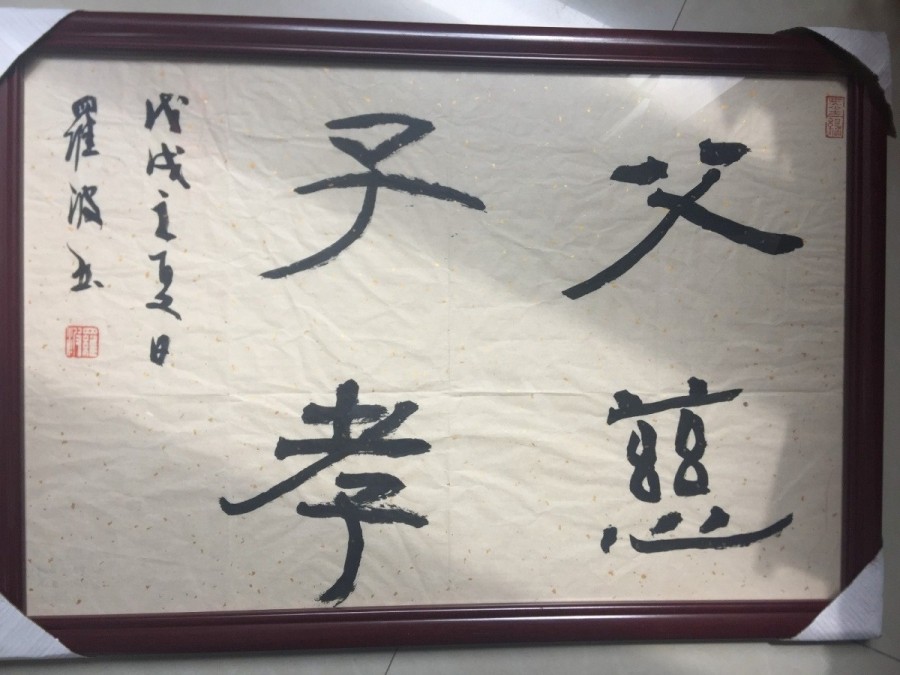 父慈
子孝
戊戌之夏日
羅波书